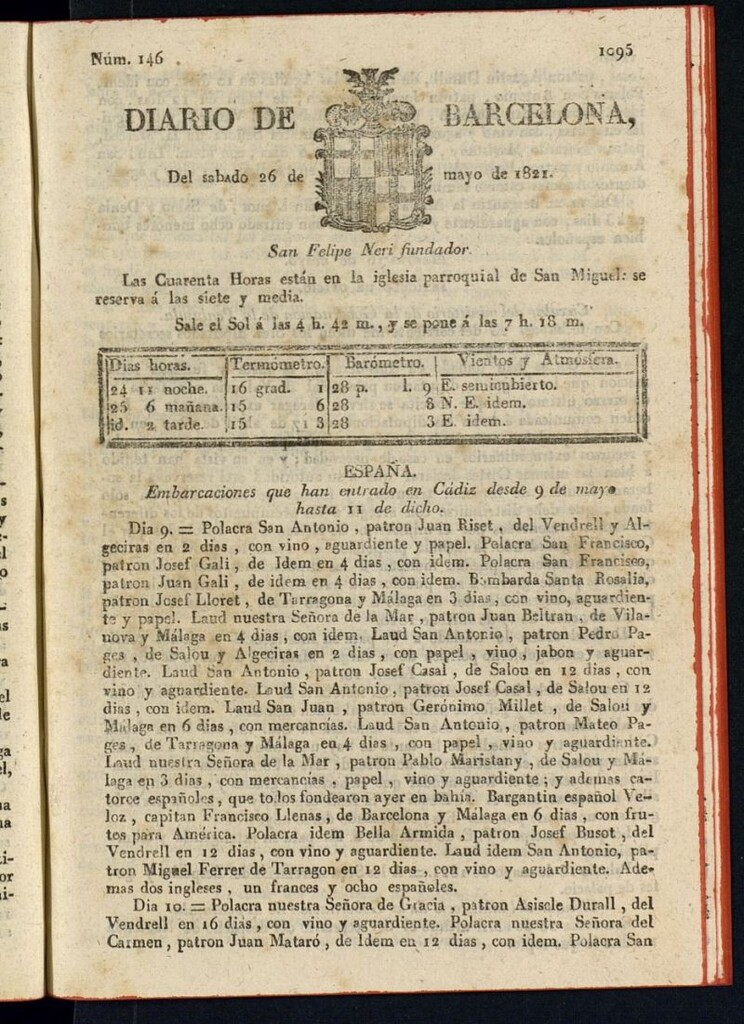 Núm. 146
1095
DIARIO DE BARCELONA,
Del sabado 26 de mayo de 1821.
San Felipe Neri fundador.
Las Cuarenta Horas están en la iglesia parroquial de San Miguel: se
reserva á las siete y media.
Sale el Sol á las 4 h. 42 m., y se pone á las 7 h. 18 m.
Dias horas. Termómetro. Barómetro. Vientos y Atmósfera.
24 11 noche. 16 grad. 1 28 p. l. 9 E. semicubierto.
25 6 mañana. 15 6 28 8 N. E. idem.
id. 2 tarde. 15 3 28 3 E. idem.
ESPAÑA.
Embarcaciones que han entrado en Cádiz desde 9 de mayo
hasta 11 de dicho.
Dia 9. = Polacra San Antonio, patron Juan Riset, del Vendrell y Al-
geciras en 2 dias, con vino, aguardiente y papel. Polacra San Francisco,
patron Josef Gali, de Idem en 4 dias, con idem. Polacra San Francisco,
patron Juan Gali, de idem en 4 dias, con idem. Bombarda Santa Rosalia,
patron Josef Lloret, de Tarragona y Málaga en 3 dias, con vino, aguardien-
te y papel. Laud nuestra Señora de la Mar, patron Juan Beltran, de Vila-
nova y Málaga en 4 dias, con idem. Laud San Antonio, patron Pedro Pa-
ges, de Salou y Algeciras en 2 dias, con papel, vino, jabon y aguar-
diente. Laud San Antonio, patron Josef Casal, de Salou en 12 dias, con
vino y aguardiente. Laud San Antonio, patron Josef Casal, de Salou en 12
dias, con idem. Laud San Juan, patron Gerónimo Millet, de Salou y
Málaga en 6 dias, con mercancías. Laud San Antonio, patron Mateo Pa-
ges, de Tarragona y Málaga en 4 dias, con papel, vino y aguardiente.
Laud nuestra Señora de la Mar, patron Pablo Maristany, de Salou y Má-
laga en 3 dias, con mercancias, papel, vino y aguardiente; y ademas ca-
torce españoles, que todos fondearon ayer en bahía. Bargantin español Ve-
loz, capitan Francisco Llenas, de Barcelona y Málaga en 6 dias, con fru-
tos para América. Polacra idem Bella Armida, patron Josef Busot, del
Vendrell en 12 dias, con vino y aguardiente. Laud idem San Antonio, pa-
tron Miguel Ferrer de Tarragon en 12 dias, con vino y aguardiente. Ade-
mas dos ingleses, un frances y ocho españoles.
Dia 10. = Polacra nuestra Señora de Gracia, patron Asiscle Durall, del
Vendrell en 16 dias, con vino y aguardiente. Polacra nuestra Señora del
Carmen, patron Juan Mataró, de Idem en 12 dias, con idem. Polacra San